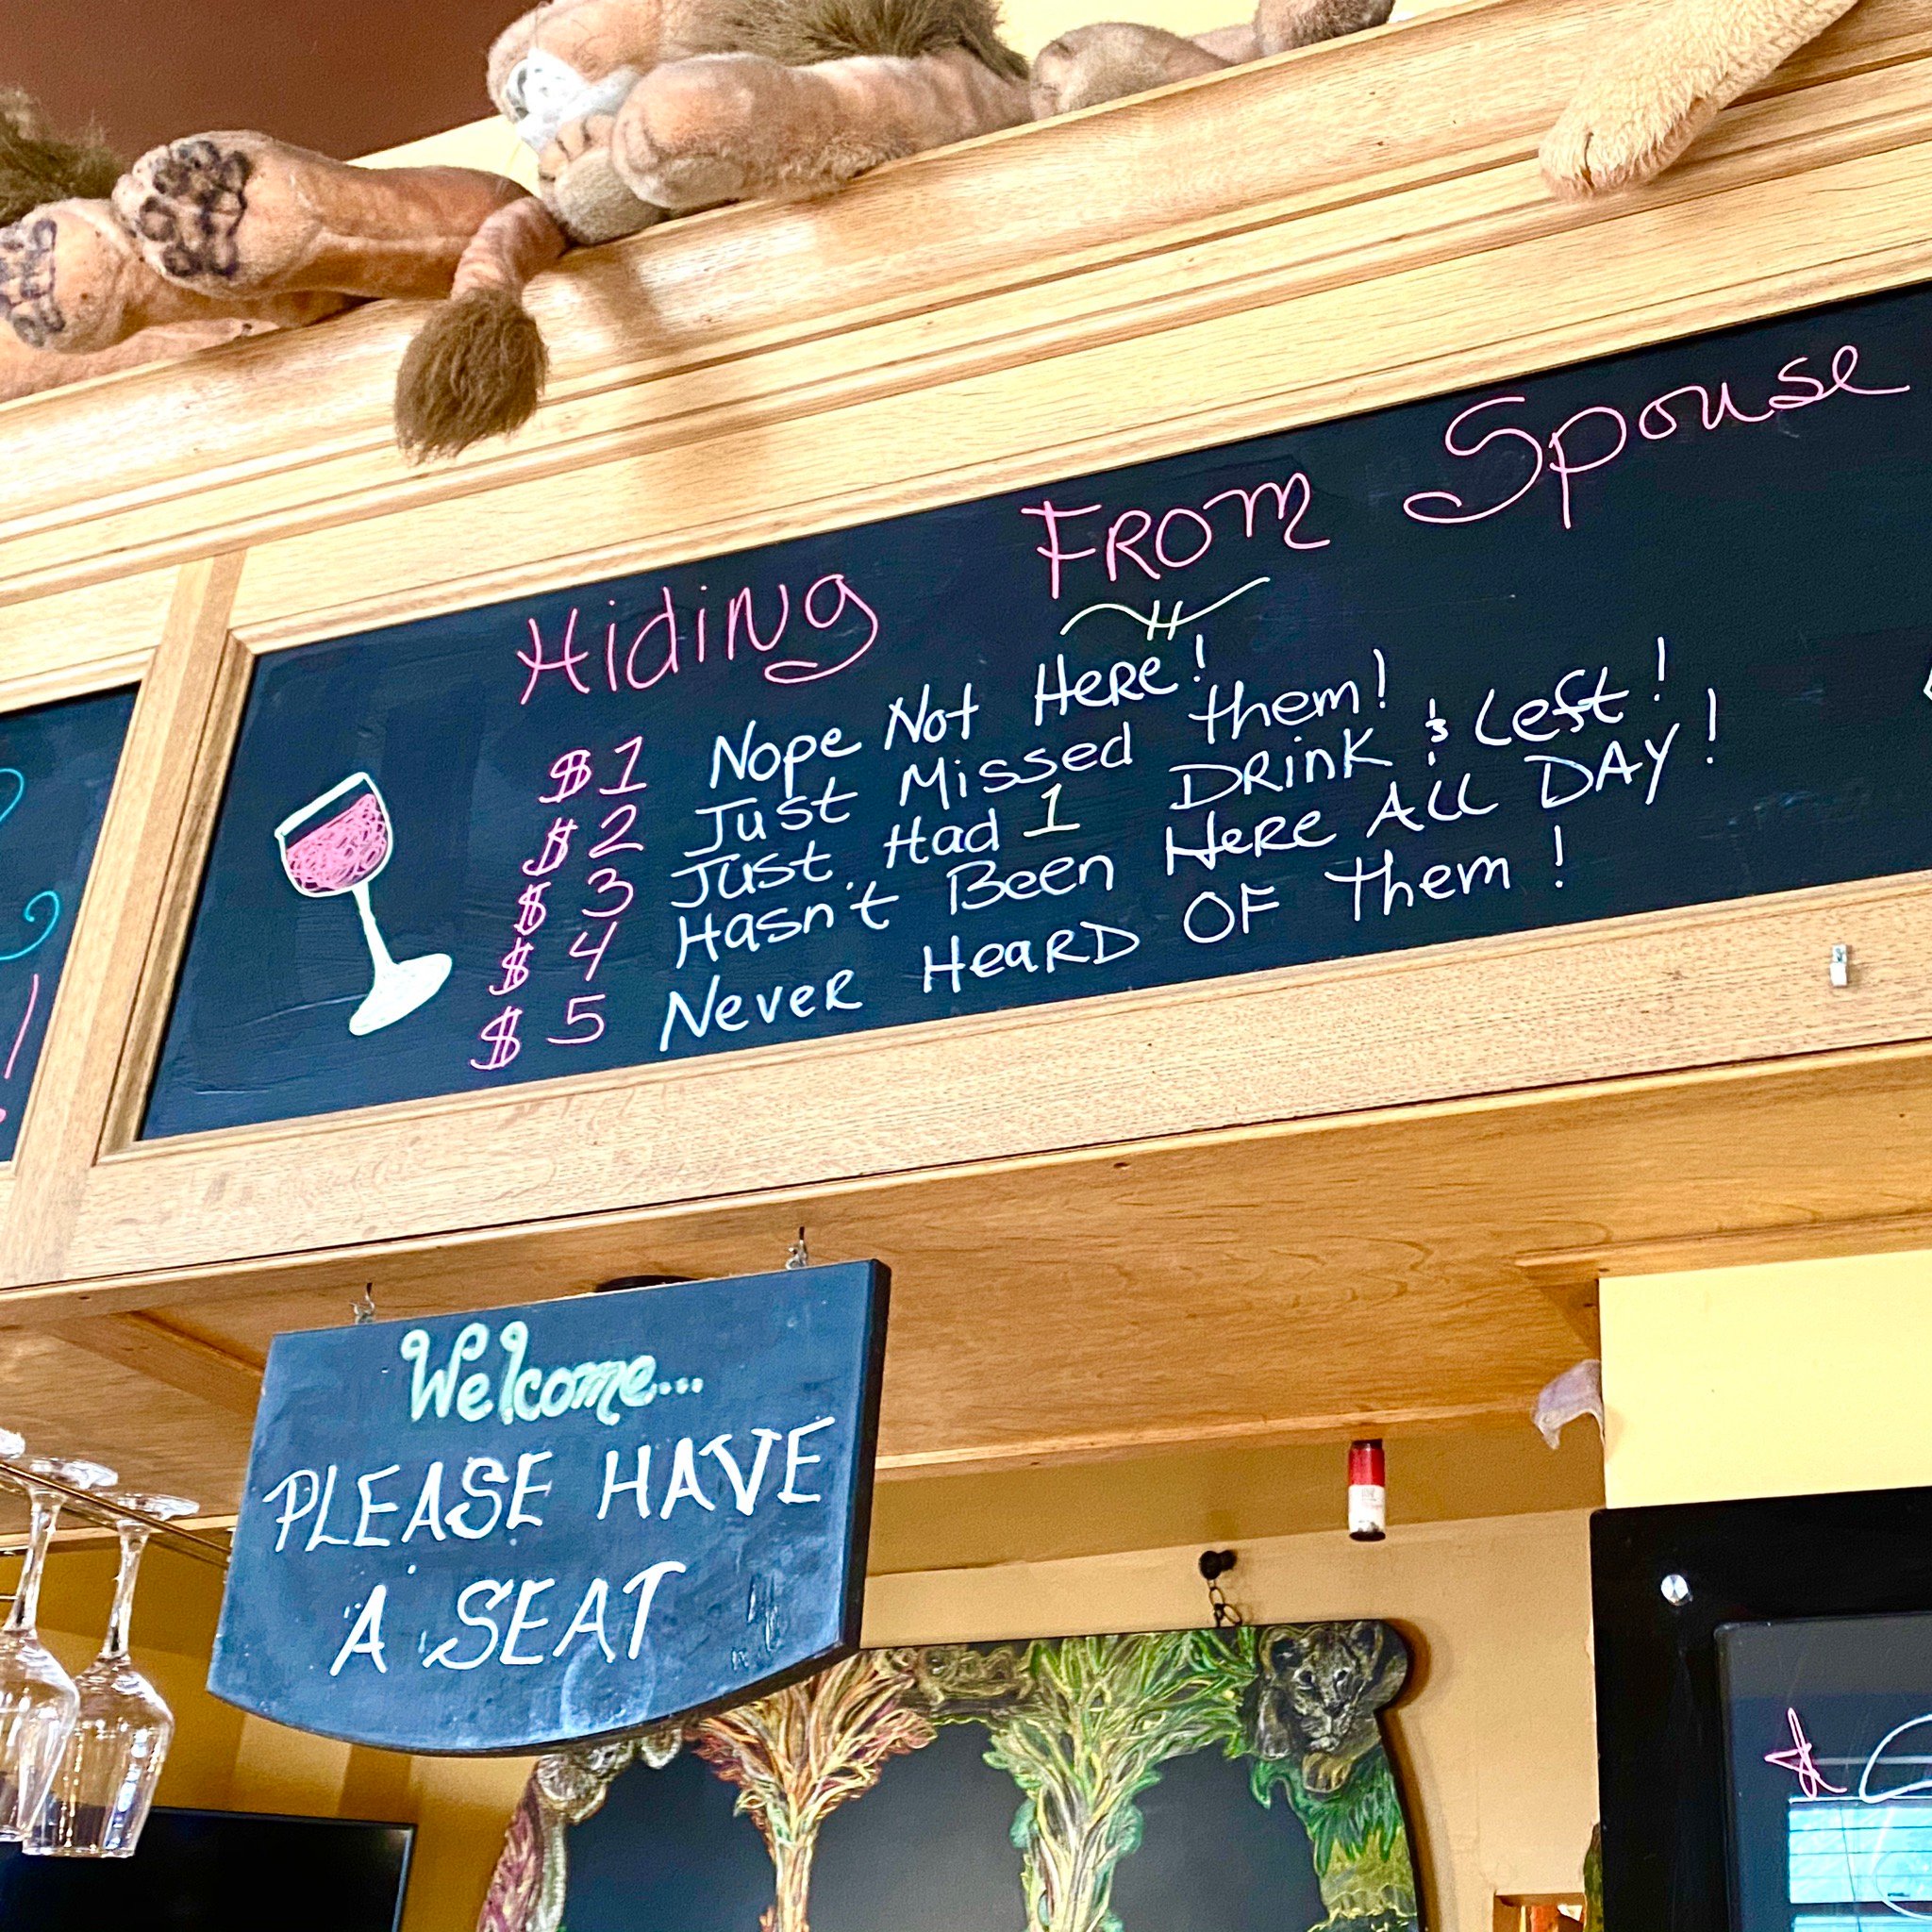 Hiding FROM Spouse
$1 Nope Not Here!
$2 Just Missed them!
$3 Just Had 1 DRink & Left!
$4 Hasn't Been Here All DAY!
$5 Never HeaRD OF Them!
Welcome...
PLEASE HAVE
A SEAT